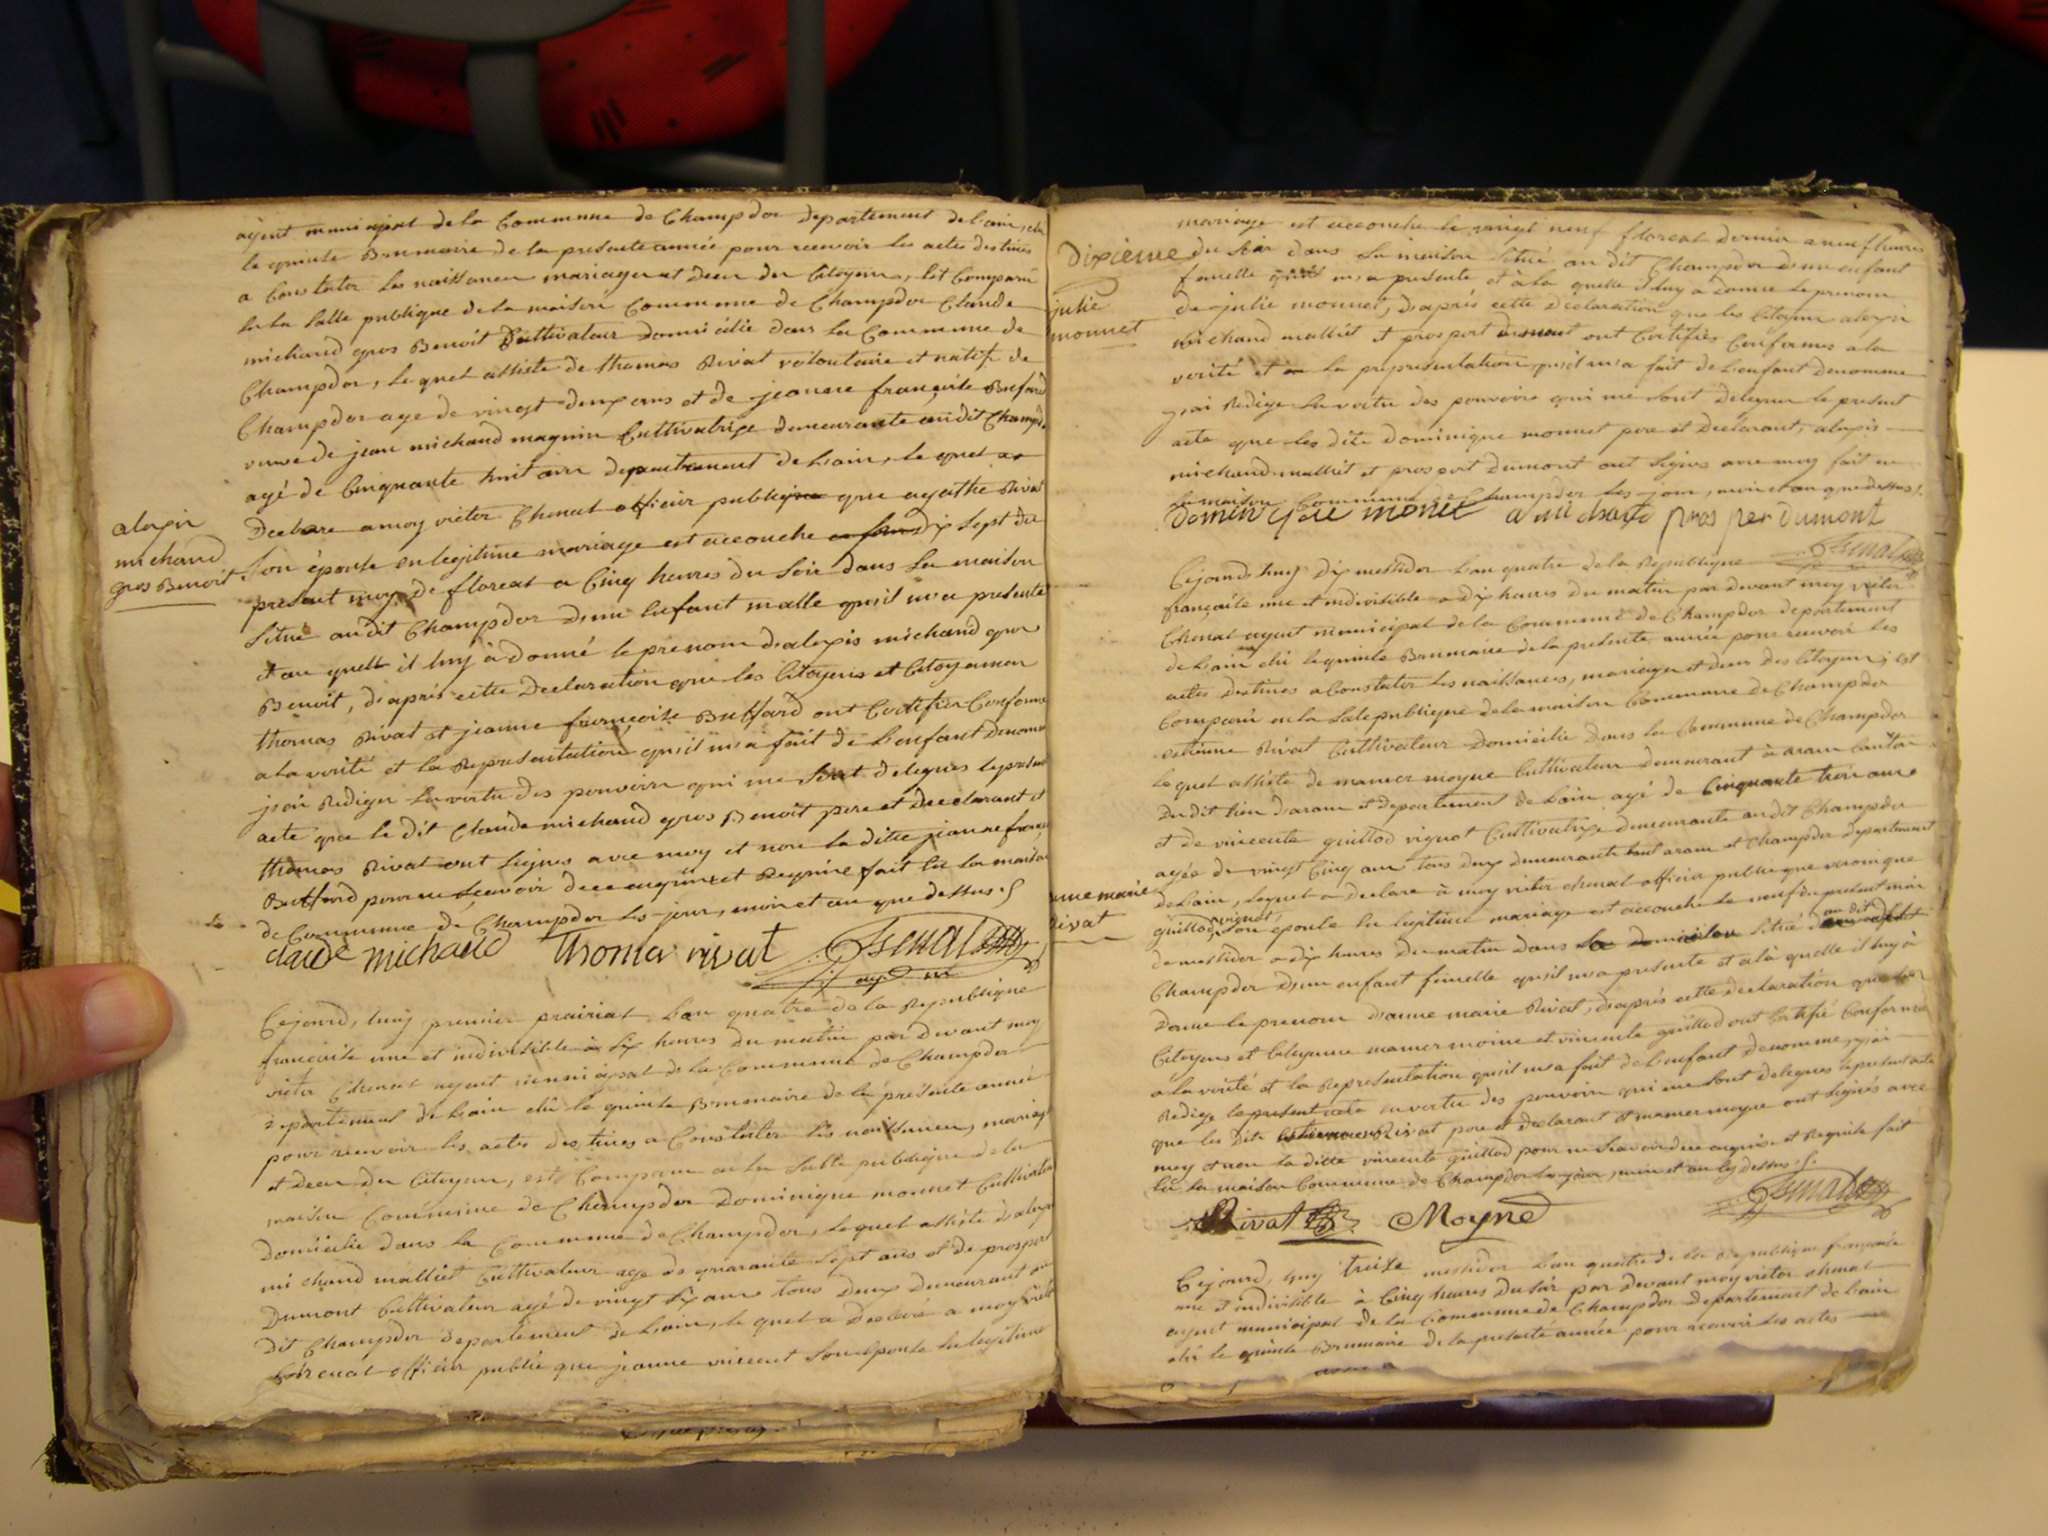 agent municipal de la Commune de Champdor departement de l'ain, elu
le quinte Brumaire de la presente année pour recevoir les actes destinés
a Constater les naissances mariages et deces des Citoyens, est Comparu
en la salle publique de la maison Commune de Champdor Claude
michaud gros Benoit Cultivateur domicilié dans la Commune de
Champdor, lequel assisté de thomas Rivat volontaire et natif de
Champdor agé de vingt deux ans et de jeanne françoise Buffard
veuve de jean michaud magnin Cultivatrice demeurante audit Champdor
agé de Cinquante huit ans departement de l'ain, lequel a
Declare a moy victor Chenat officier publique que agathe Rivat
alexis
michaud
gros Benoit
son épouse en legitime mariage est accouche dix sept du
present moy de floreal a Cinq heures du soir dans sa maison
situé audit Champdor d'un enfant malle qu'il m'a presenté
et au quelle il luy à donné le prenom d'alexis michaud gros
Benoit, d'après cette Declaration que les Citoyens et Citoyenne
thomas Rivat et jeanne françoise Buffard ont Certifier Conforme
a la verité et la Representation qu'il m'a fait de l'enfant denommé
j'ai Rediger en vertu des pouvoirs qui me sont delegués le present
acte que le dit Claude michaud gros Benoit pere et Declarant et
thomas Rivat ont signés avec moy et non la ditte jeanne françoise
Buffard pour ne sçavoir de ce enquise et Requise fait en la maison
de Commune de Champdor les jour, mois et an que dessus
claude michaud thomas rivat Chenat
Cejourd'huy premier prairial l'an quatre de la Republique
françoise une et indivisible à six heures du matin par devant moy
victor Chenat agent municipal de la Commune de Champdor
departement de l'ain élu le quinte Brumaire de la présente année
pour recevoir les actes destinés a Constater les naissances, mariages
et deces des Citoyens, est Comparu en la salle publique de la
maison Commune de Champdor Dominique monnet Cultivateur
domicilié dans la Commune de Champdor, lequel assisté d'alexis
michaud malliet Cultivateur age de quarante sept ans et de prospert
Dumont Cultivateur agé de vingt six ans tous deux demeurant au
dit Champdor departement de l'ain, le quel a Declare a moy victor
Chenat officier public que jeanne vincent son épouse en legitime
mariage est accouche le vingt neuf floreal dernier a neuf heures
Dixieme
julie
monnet
du soir dans sa maison situé au dit Champdor d'un enfant
femelle qu'il m'a presenté et à la quelle il luy a donné le prenom
de julie monnet, d'après cette Declaration que les Citoyens alexis
michaud malliet et prospert dumont ont Certifiés Conformes a la
verité et la representation qu'il m'a fait de l'enfant denommé
j'ai Redige en vertu des pouvoirs qui me sont delegues le present
acte que les dits dominique monnet pere et Declarant, alexis
michaud malliet et prospert Dumont ont signés avec moy fait en
la maison Commune de Champdor les jour, mois et an que dessus
Dominique monet a michaud prosper dumont
Chenat
Cejourd'huy dix messidor l'an quatre de la Republique
françaîse une et indivisible a dix heures du matin par devant moy victor
Chenat agent municipal de la Commune de Champdor departement
de l'ain élu le quinte Brumaire de la presente année pour recevoir les
actes destinés a Constater les naissances, mariages et deces des Citoyens, est
Comparu en la sale publique de la maison Commune de Champdor
etienne Rivat Cultivateur domicilié dans la Commune de Champdor
lequel assisté de mamer moyne Cultivateur demeurant à aran Canton
du dit lieu d'aran et departement de l'ain agé de Cinquante trois ans
et de vincente guillod vignot Cultivatrice demeurante audit Champdor
agée de vingt Cinq ans tous deux demeurants aran et Champdor departement
de l'ain, lequel a declare à moy victor Chenat officier publique veronique
anne marie
rivat
guillod vignot son épouse en legitime mariage est accouche le neuf du present mois
de messidor a dix heures du matin dans situé au dit
Champdor d'un enfant femelle qu'il m'a presenté et à la quelle il luy à
donné le prenom d'anne marie Rivat, d'après cette declaration que les
Citoyens et Citoyenne mamer moine et vincente guillod ont Certifié Conforme
à la verité et la Representation qu'il m'a fait de l'enfant denommé, j'ai
Rediges le present acte en vertu des pouvoirs qui me sont delegues le present acte
que les dits etienne Rivat pere et declarant et mamer moyne ont signés avec
moy et non la ditte vincente guillod pour ne sçavoir de ce enquise et Requise fait
en la maison Commune de Champdor les jour, mois et an que dessus
Rivat Moyne Chenat
Cejourd'huy treize messidor l'an quatre de la Republique françaîse
une et indivisible à Cinq heures du soir par devant moy victor chenat
agent municipal de la Commune de Champdor departement de l'ain
élu le quinte Brumaire de la presente année pour recevoir les actes